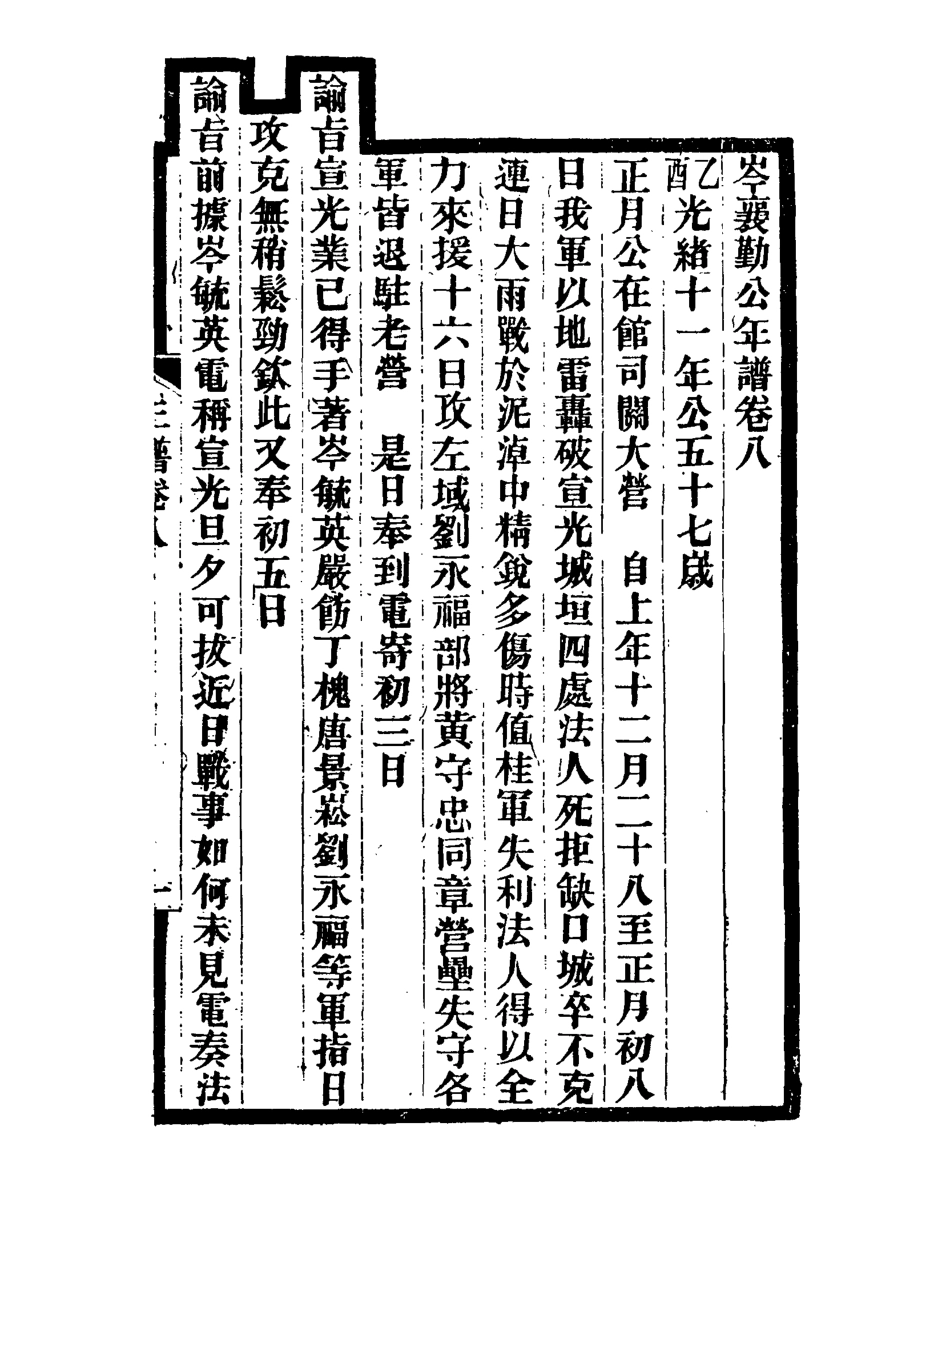 岑襄勤公年譜卷八
乙酉光緒十一年公五十七歲
正月公在館司關大營　自上年十二月二十八至正月初八
日我軍以地雷轟破宣光城垣四處法人死拒缺口城卒不克
連日大雨戰於泥淖中精銳多傷時值桂軍失利法人得以全
力來援十六日攻左域劉永福部將黃守忠同章營壘失守各
軍皆退駐老營　是日奉到電寄初三日
諭旨宣光業已得手著岑毓英嚴飭丁槐唐景崧劉永福等軍指日
攻克無稍鬆勁欽此又奉初五日
諭旨前據岑毓英電稱宣光旦夕可拔近日戰事如何未見電奏法
譜卷八